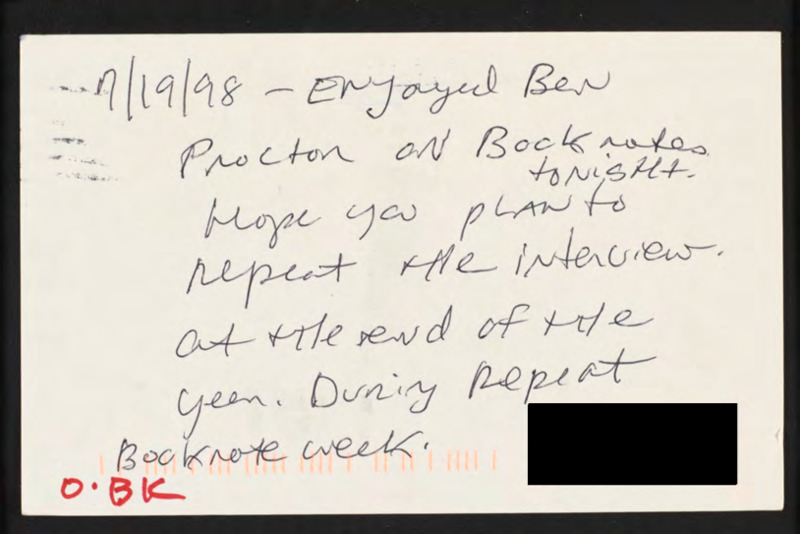 7/19/98 - Enjoyed Ben
Proctor on Booknotes
tonight.
Hope you plan to
repeat the interview.
at the end of the
year. During repeat
Booknote week.
O.BK